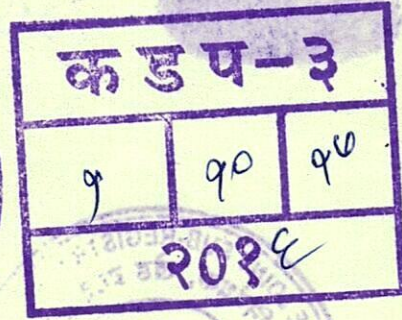 क ड प-३
१ १० १७
२०१६